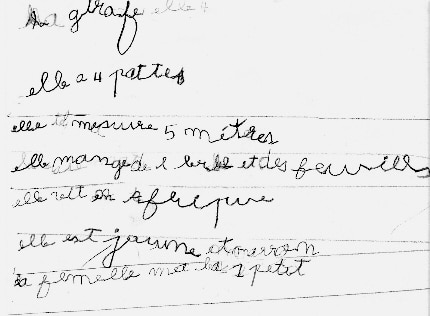 La girafe
elle a 4 pattes
elle mesure 5 métres
elle mange de l herbe et des feuills
elle vit en Afrique
elle est jaune et marron
la femelle met ba 1 petit